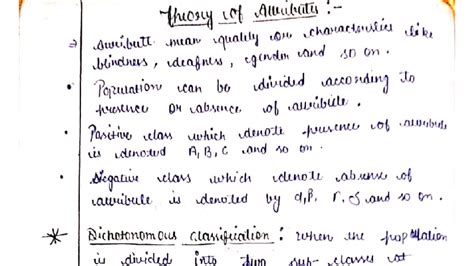 Theory of Attributes :-
→ Attribute mean quality or characteristics like
blindness, deafness, gender and so on.
• Population can be divided according to
presence or absence of attribute.
• Positive class which denote presence of attribute
is denoted A, B, C and so on.
• Negative class which denote absense of
attribute is denoted by α, β, r, δ and so on.
* Dichotonomous classification : When the population
is divided into two sub-classes at